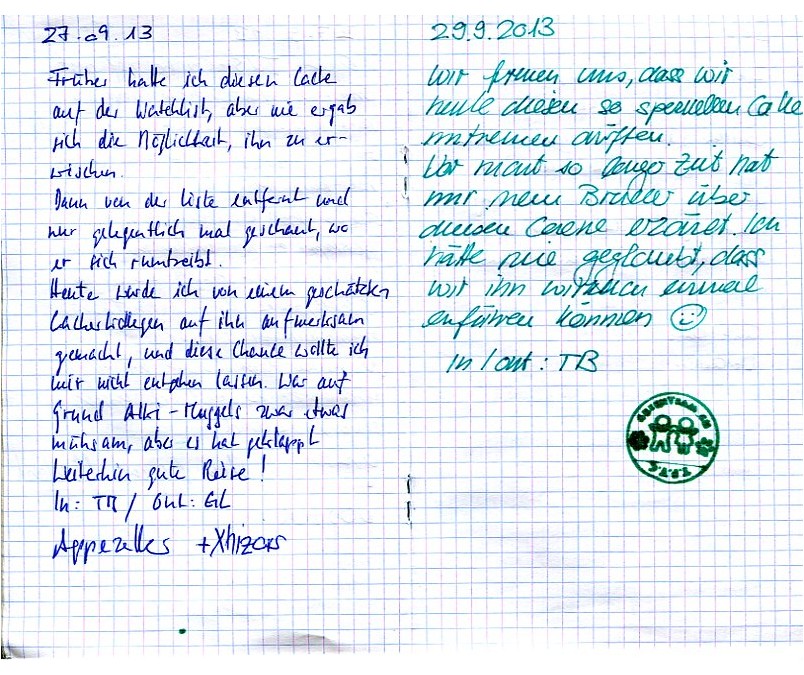 27.09.13
Früher hatte ich diesen Cache
auf der Watchlist, aber nie ergab
sich die Möglichkeit, ihn zu er-
wischen.
Dann von der Liste entfernt und
nur gelegentlich mal geschaut, wo
er sich rumtreibt.
Heute wurde ich von einem geschätzten
Cacherkollegen auf ihn aufmerksam
gemacht, und diese Chance wollte ich
mir nicht entgehen lassen. War auf
Grund Alki-Muggels zwar etwas
mühsam, aber es hat geklappt
Weiterhin gute Reise!
In: TB / Out: GC
+Xhizors
29.9.2013
Wir freuen uns, dass wir
heute diesen so speziellen Cache
mitnehmen dürften.
Vor nicht so langer Zeit hat
mir mein Bruder über
diesen Cache erzählt. Ich
hätte nie geglaubt, dass
wir ihn wirklich einmal
entführen können
In / out: TB